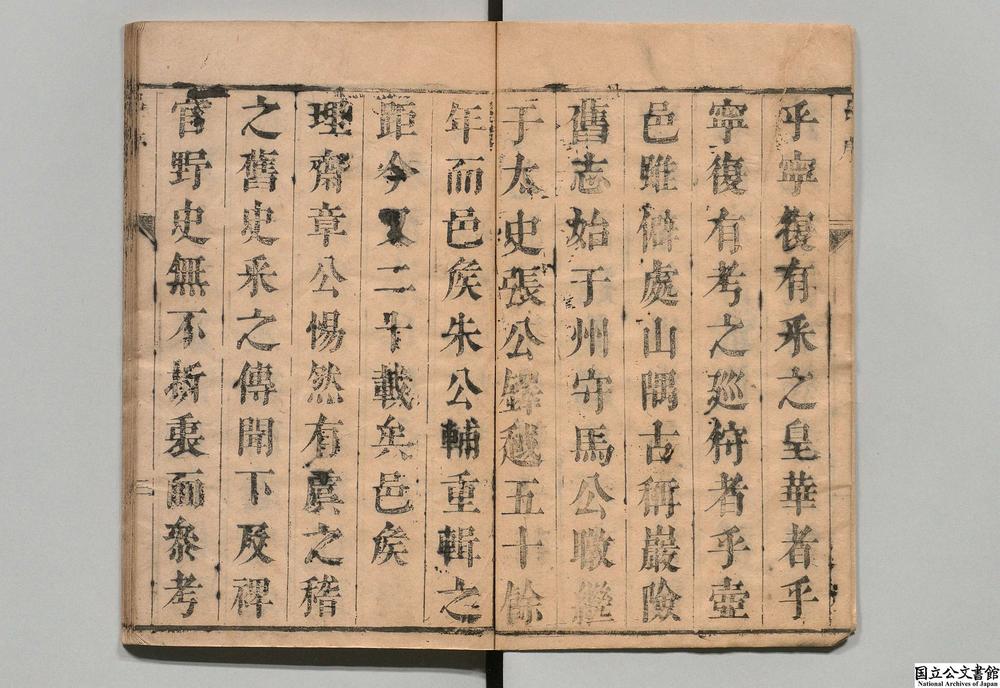 乎寧復有釆之皇華者乎
寧復有考之廵符者乎壺
邑雖僻處山隅古稱巖險
舊志始于州守馬公暾繼
于太史張公鐸越五十餘
年而邑矦朱公輔重輯之
距今又二十載矣邑矦
理齋章公惕然有虞之稽
之舊史釆之傳聞下及稗
官野史無不折衷而叅考
二
国立公文書館
National Archives of Japan